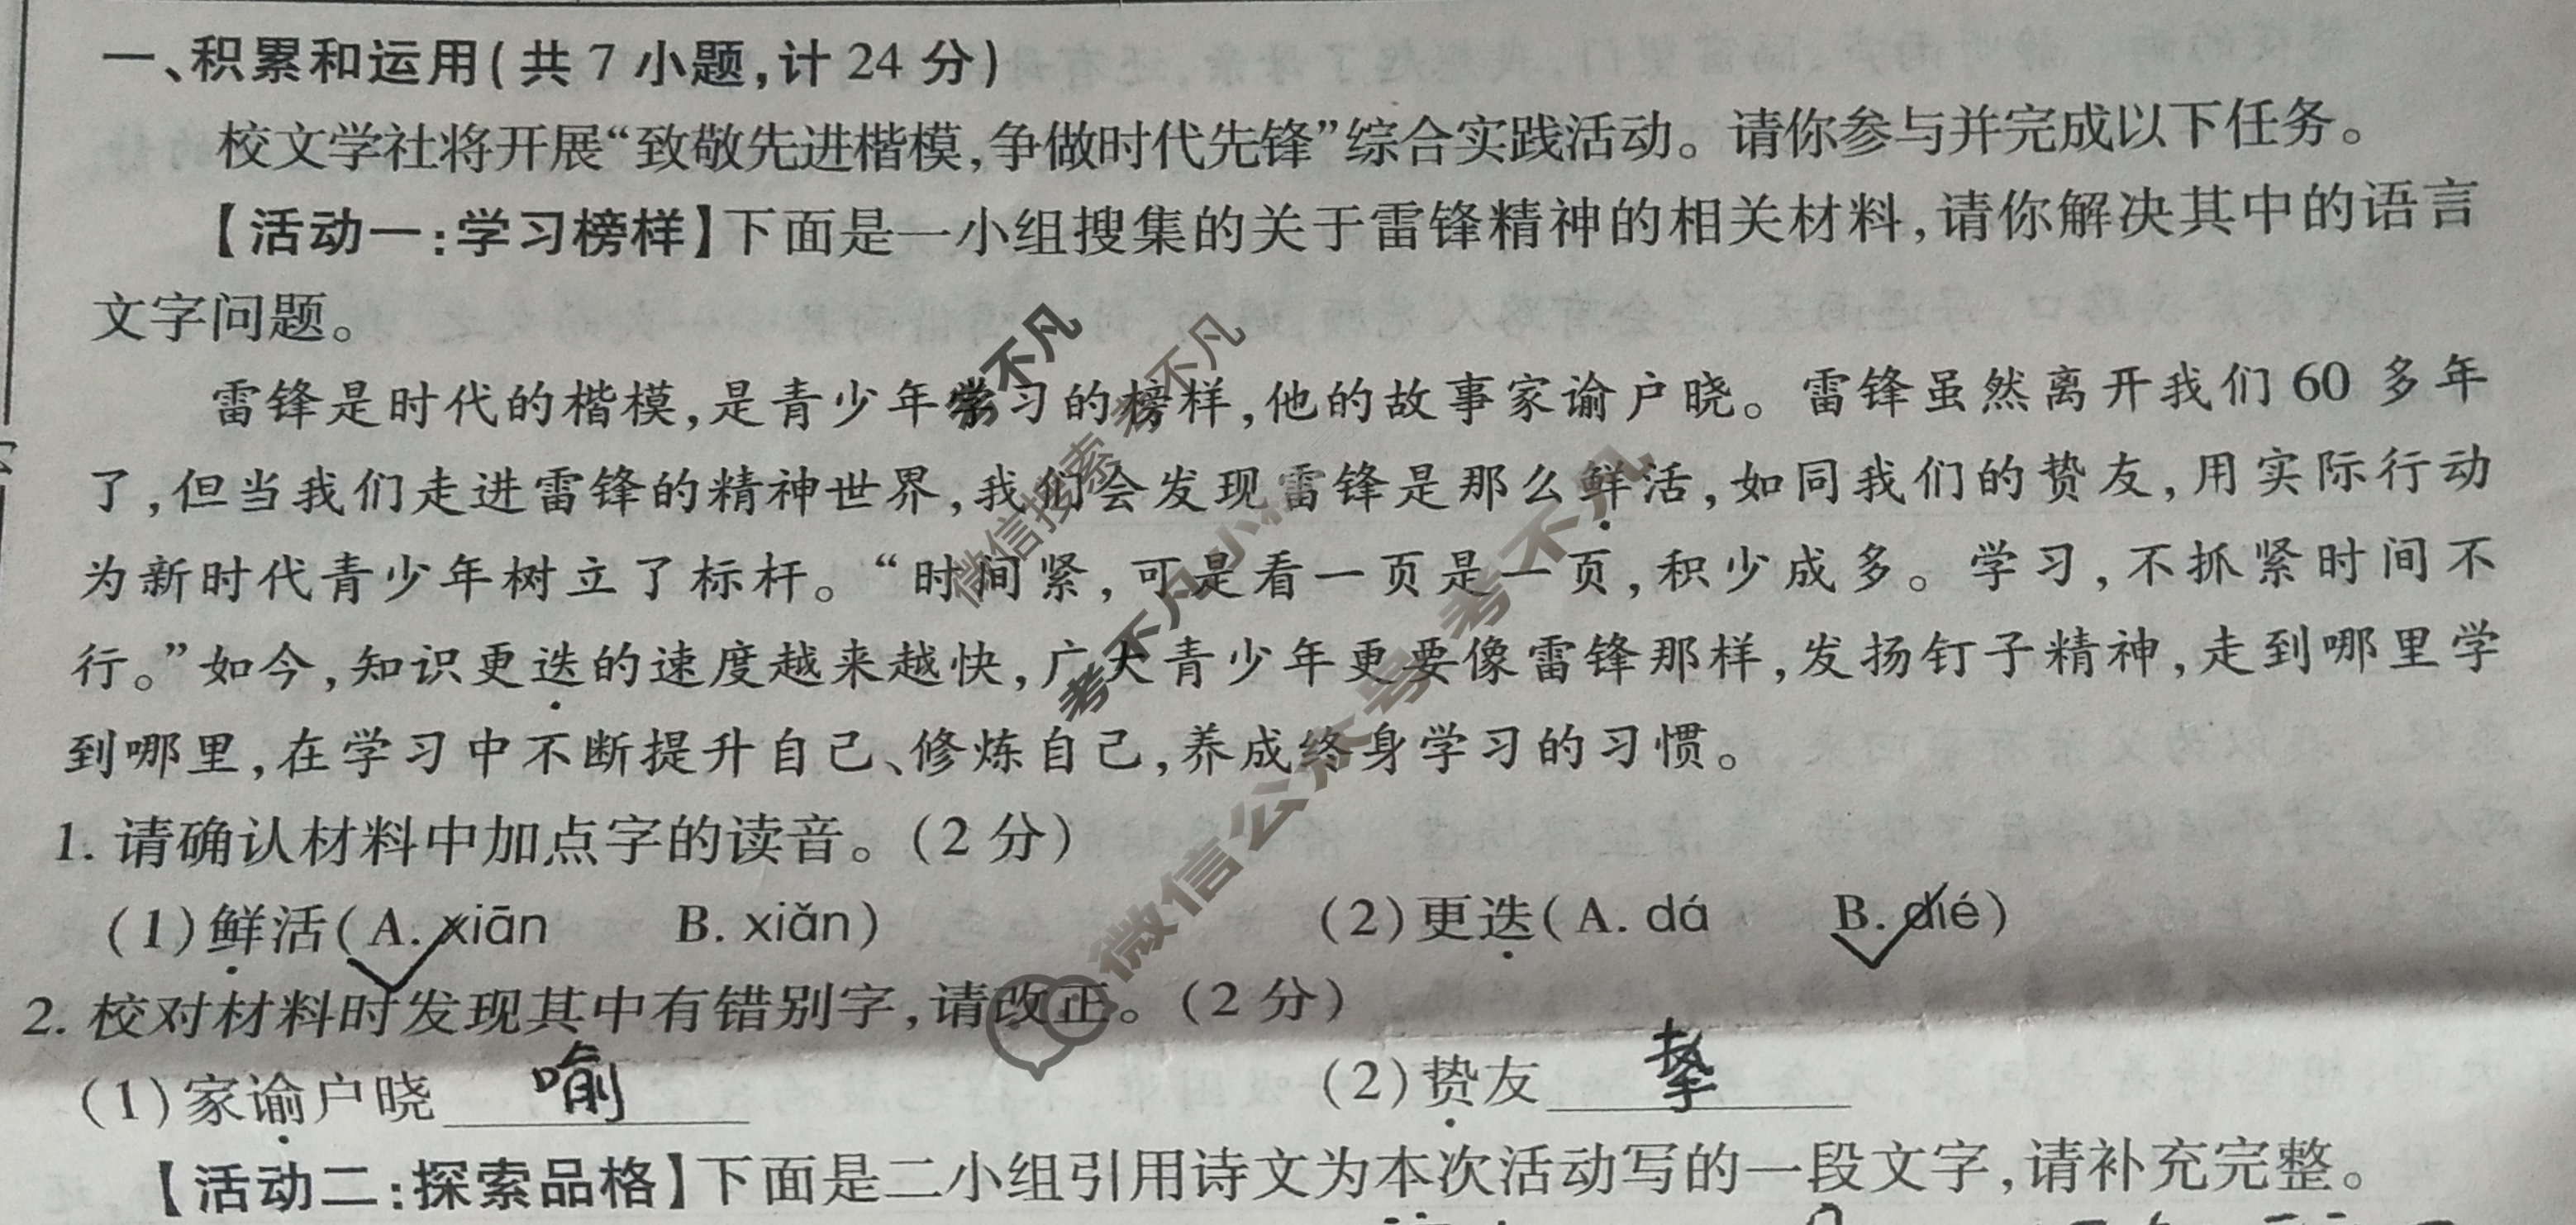 一、积累和运用(共7小题,计24分)
校文学社将开展“致敬先进楷模,争做时代先锋”综合实践活动。请你参与并完成以下任务。
【活动一:学习榜样】下面是一小组搜集的关于雷锋精神的相关材料,请你解决其中的语言
文字问题。
雷锋是时代的楷模,是青少年学习的榜样,他的故事家谕户晓。雷锋虽然离开我们60多年
了,但当我们走进雷锋的精神世界,我们会发现雷锋是那么鲜活,如同我们的贽友,用实际行动
为新时代青少年树立了标杆。“时间紧,可是看一页是一页,积少成多。学习,不抓紧时间不
行。”如今,知识更迭的速度越来越快,广大青少年更要像雷锋那样,发扬钉子精神,走到哪里学
到哪里,在学习中不断提升自己、修炼自己,养成终身学习的习惯。
1.请确认材料中加点字的读音。(2分)
(1)鲜活(A. xiān B. xiǎn) (2)更迭(A. dá B. dié)
2.校对材料时发现其中有错别字,请改正。(2分)
(1)家谕户晓 喻 (2)贽友 挚
【活动二:探索品格】下面是二小组引用诗文为本次活动写的一段文字,请补充完整。
考不凡
微信搜索 考不凡
考不凡小
微信公众号 考不凡